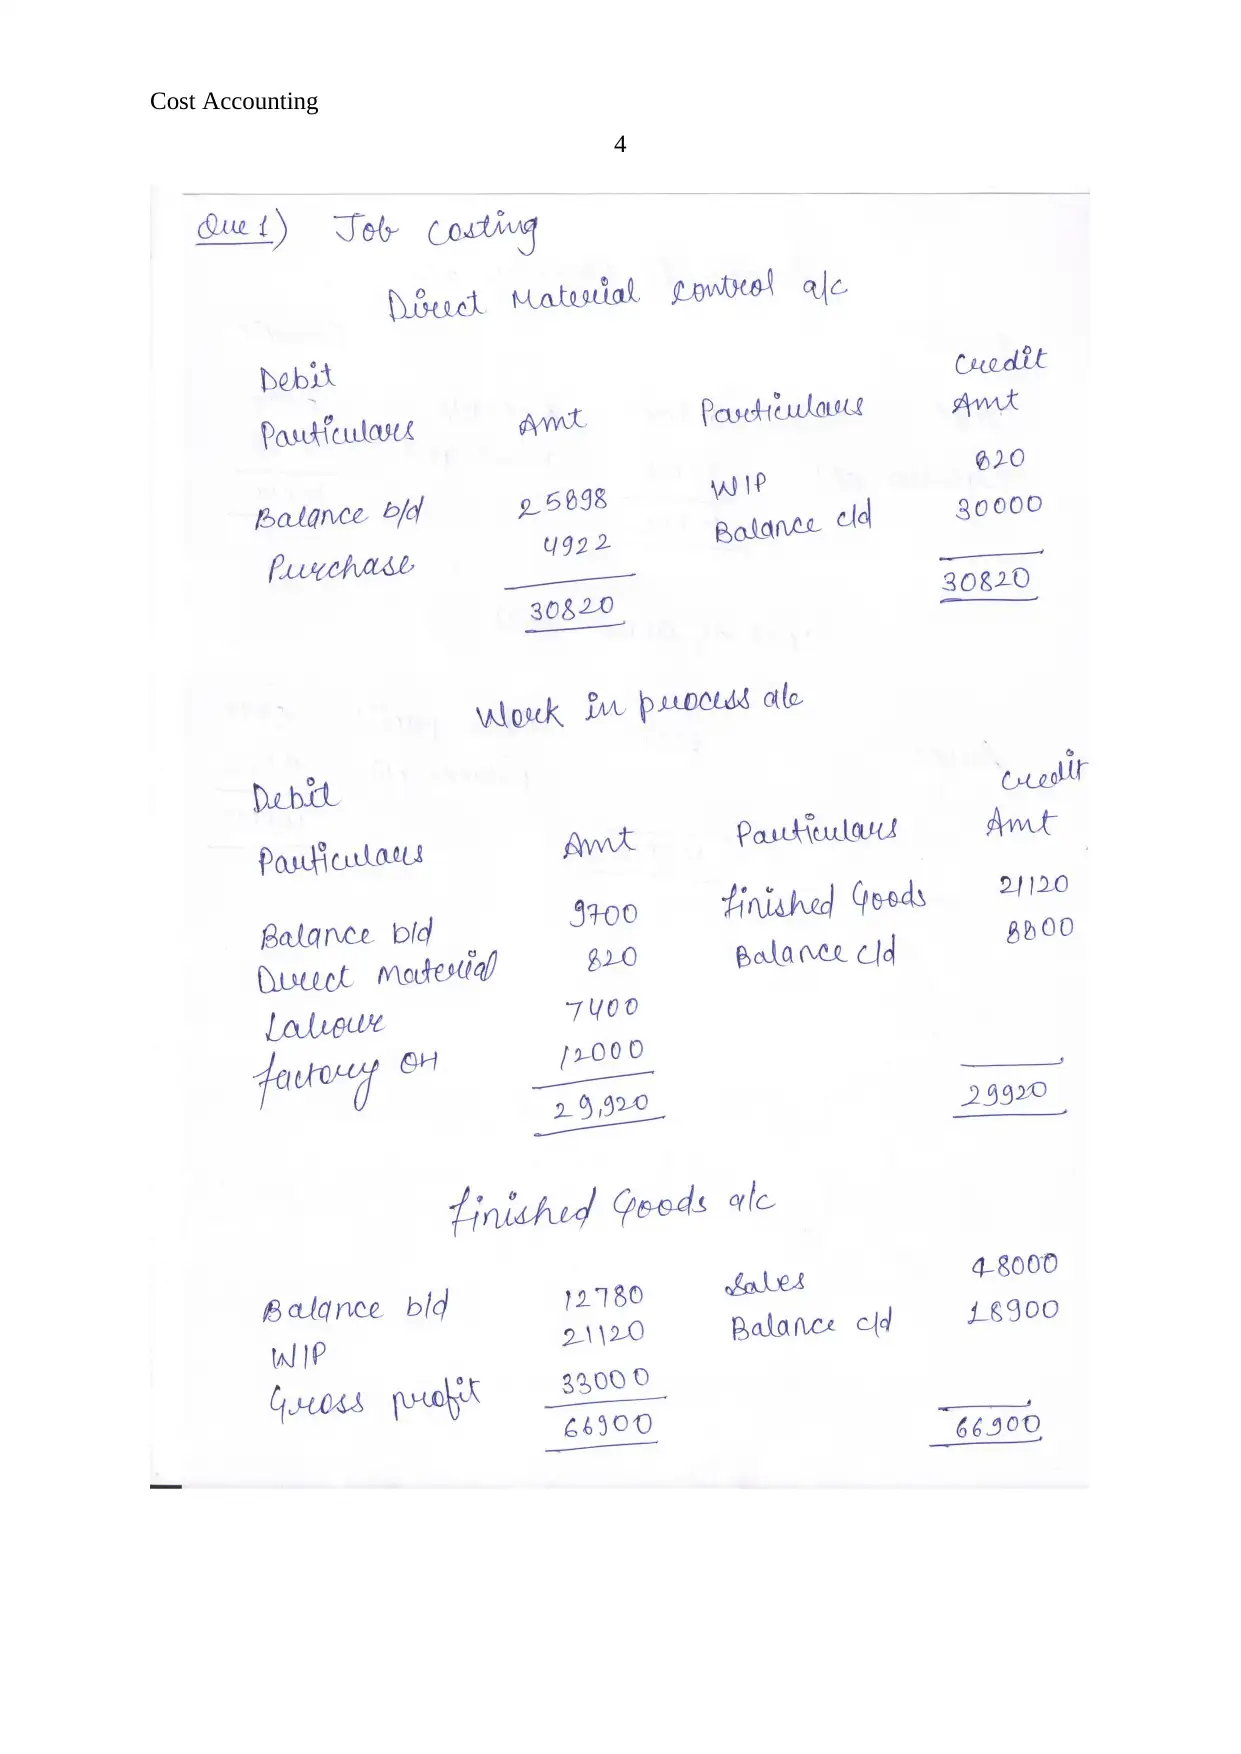 Cost Accounting
4
Que 1) Job costing
Direct Material control a/c
Debit Credit
Particulars Amt Particulars Amt
Balance b/d 25898 WIP 820
Purchase 4922 Balance c/d 30000
30820 30820
Work in process a/c
Debit Credit
Particulars Amt Particulars Amt
Balance b/d 9700 Finished Goods 21120
Direct Material 820 Balance c/d 8800
Labour 7400
factory OH 12000
29,920 29920
Finished Goods a/c
Balance b/d 12780 Sales 48000
WIP 21120 Balance c/d 18900
Gross profit 33000
66900 66900